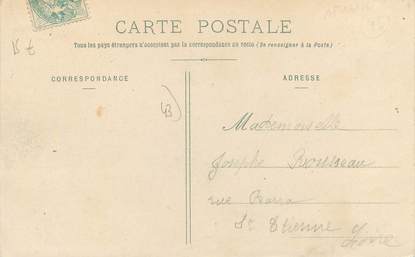 CARTE POSTALE
15 €
Tous les pays étrangers n'acceptent pas la correspondance au recto (Se renseigner à la Poste)
CORRESPONDANCE
ADRESSE
43
Mademoiselle
Josephe Rousseau
rue
St Etienne
Loire